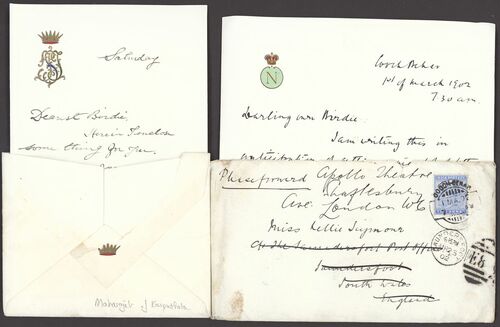 Saturday
Dearest Birdie,
Here is London
some thing for you
Maharajah of Kapurthala
N
Cooch Behar
1st of March 1902
7.30 am
Darling own Birdie
I am writing this in
Please forward Apollo Theatre
Shaftesbury
Ave London WC
Miss Nellie Seymour
At The Saundersfoot Post Office
Saundersfoot
South Wales
England
COOCH BEHAR